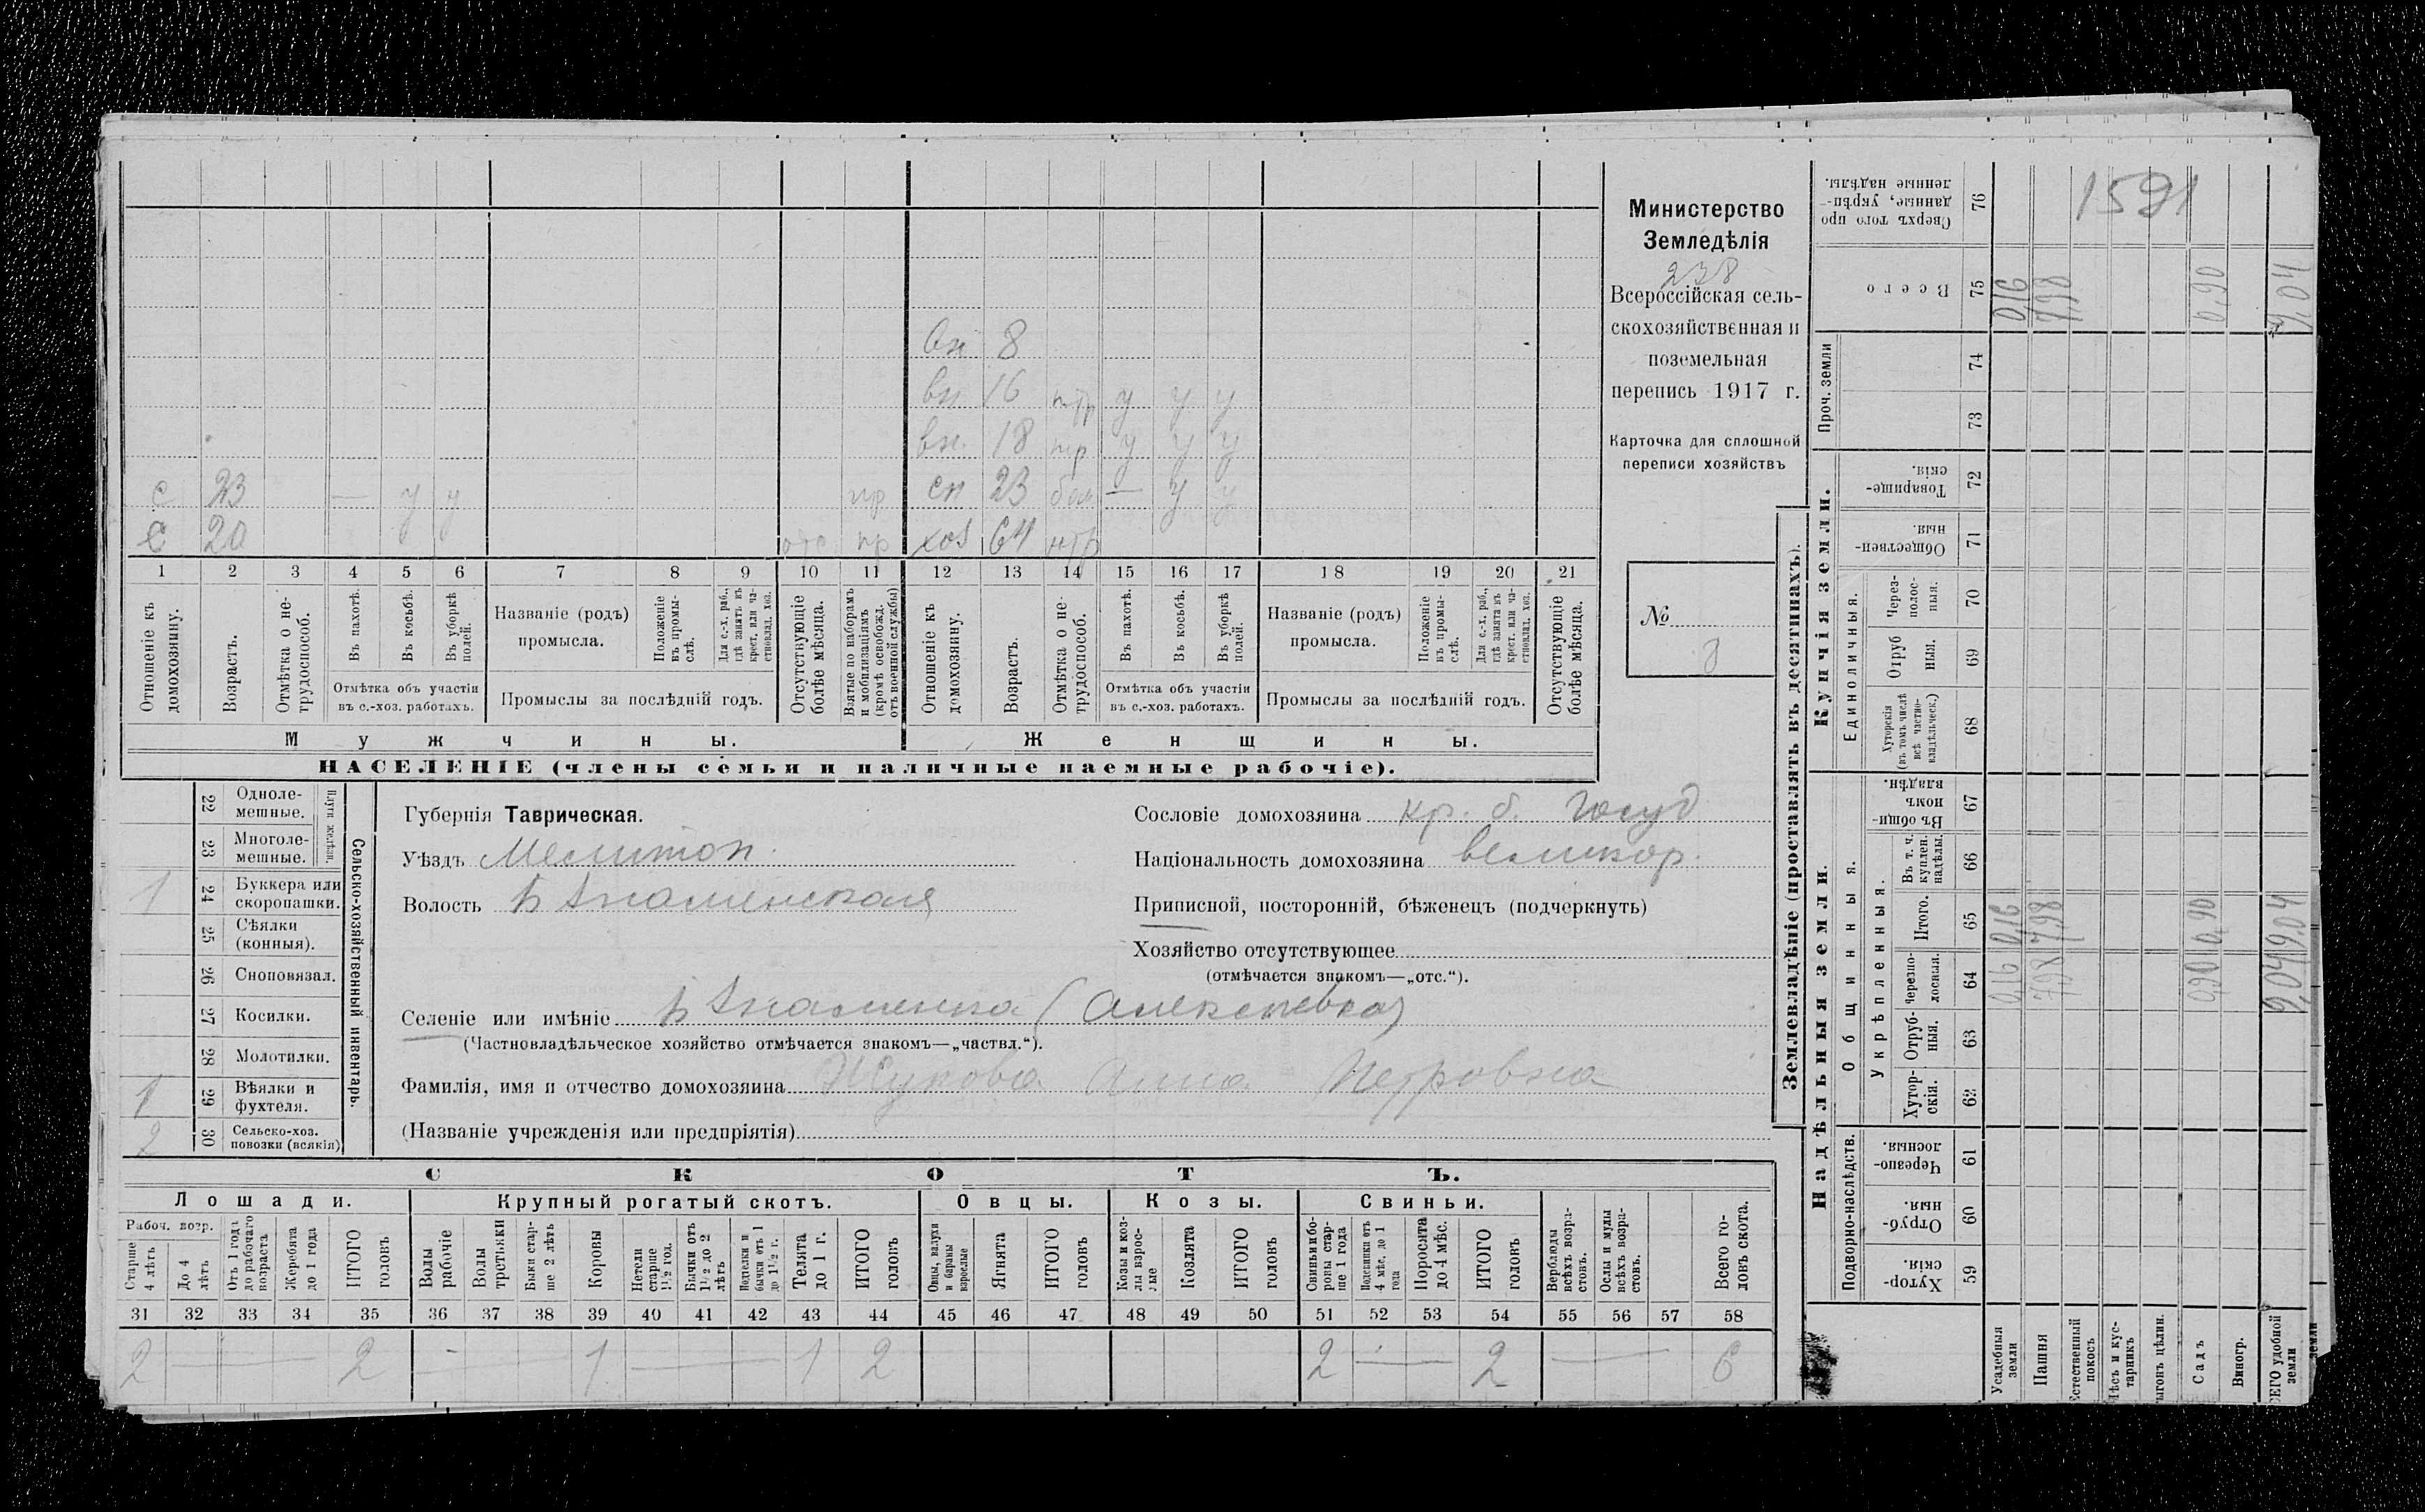 Министерство
Земледѣлія
238
Всероссійская сель-
скохозяйственная и
поземельная
перепись 1917 г.
Карточка для сплошной
переписи хозяйствъ
№
8
вн 8
вн 16 нтр у у у
вн. 18 нтр у у у
с 23 — у у пр сн 23 бол — у у
с 20 отс пр хоз 64 нтр
1 2 3 4 5 6 7 8 9 10 11 12 13 14 15 16 17 18 19 20 21
Отношеніе къ домохозяину.
Возрастъ.
Отмѣтка о не-трудоспособ.
Въ пахотѣ.
Въ косьбѣ.
Въ уборкѣ полей.
Отмѣтка объ участіи въ с.-хоз. работахъ.
Названіе (родъ) промысла.
Положеніе въ промы-слѣ.
Для с.-х. раб., гдѣ занятъ въ крест. или ча-стновлад. хоз.
Промыслы за послѣдній годъ.
Отсутствующіе болѣе мѣсяца.
Взятые по наборамъ и мобилизаціямъ (кромѣ освобожд. отъ военной службы)
Отношеніе къ домохозяину.
Возрастъ.
Отмѣтка о не-трудоспособ.
Въ пахотѣ.
Въ косьбѣ.
Въ уборкѣ полей.
Отмѣтка объ участіи въ с.-хоз. работахъ.
Названіе (родъ) промысла.
Положеніе въ промы-слѣ.
Для с.-х. раб., гдѣ занята въ крест. или ча-стновлад. хоз.
Промыслы за послѣдній годъ.
Отсутствующіе болѣе мѣсяца.
Мужчины. Женщины.
НАСЕЛЕНІЕ (члены семьи и наличные наемные рабочіе).
Сельско-хозяйственный инвентарь.
Плуги желѣзн.
22 Одноле-мешные.
23 Многоле-мешные.
1 24 Буккера или скоропашки.
25 Сѣялки (конныя).
26 Сноповязал.
27 Косилки.
28 Молотилки.
1 29 Вѣялки и фухтеля.
2 30 Сельско-хоз. повозки (всякія)
Губернія Таврическая.
Уѣздъ Мелитоп.
Волость Б Знаменская
Сословіе домохозяина кр. б. госуд
Національность домохозяина великор.
Приписной, посторонній, бѣженецъ (подчеркнуть)
Хозяйство отсутствующее
(отмѣчается знакомъ—„отс.“).
Селеніе или имѣніе Б Знаменка (Алексеевка)
(Частновладѣльческое хозяйство отмѣчается знакомъ—„частвл.“).
Фамилія, имя и отчество домохозяина Жукова Анна Петровна
(Названіе учрежденія или предпріятія)
СКОТЪ.
Лошади. Крупный рогатый скотъ. Овцы. Козы. Свиньи.
Рабоч. возр.
Старше 4 лѣтъ
До 4 лѣтъ
Отъ 1 года до рабочаго возраста
Жеребята до 1 года
ИТОГО головъ
Волы рабочіе
Волы третьяки
Быки стар-ше 2 лѣтъ
Коровы
Нетели старше 1½ год.
Бычки отъ 1½ до 2 лѣтъ
Подтелки и бычки отъ 1 до 1½ г.
Телята до 1 г.
ИТОГО головъ
Овцы, валухи и бараны взрослые
Ягнята
ИТОГО головъ
Козы и коз-лы взрос-лые
Козлята
ИТОГО головъ
Свиньи и бо-ровы стар-ше 1 года
Подсвинки отъ 4 мѣс. до 1 года
Поросята до 4 мѣс.
ИТОГО головъ
Верблюды всѣхъ возра-стовъ.
Ослы и мулы всѣхъ возра-стовъ.
Всего го-ловъ скота.
31 32 33 34 35 36 37 38 39 40 41 42 43 44 45 46 47 48 49 50 51 52 53 54 55 56 57 58
2 — 2 — 1 — 1 2 2 — 2 — 6
Землевладѣніе (проставлять въ десятинахъ).
Надѣльныя земли. Купчія земли.
Подворно-наслѣдств.
Общинныя.
Укрѣпленныя.
Единоличныя.
Проч. земли
Хутор-скія. 59
Отруб-ныя. 60
Черезпо-лосныя. 61
Хутор-скія. 62
Отруб-ныя. 63
Черезпо-лосныя. 64
Итого. 65
Въ т. ч. куплен. надѣлы. 66
Въ общи-номъ владѣн. 67
Хуторскія (въ томъ числѣ всѣ частно-владѣльческ.) 68
Отруб ныя. 69
Через-полос-ныя. 70
Обществен-ныя. 71
Товарище-скія. 72
73
74
Всего 75
Сверхъ того про данные, укрѣп-ленные надѣлы. 76
1591
Усадебная земли 0,16 0,16 0,16
Пашня 7,98 7,98 7,98
Естественный покосъ
Лѣсъ и кус-тарникъ
Выгонъ цѣлин.
Садъ 0,90 0,90 0,90
Виногр.
ВСЕГО удобной земли 9,04 9,04 9,04
земли